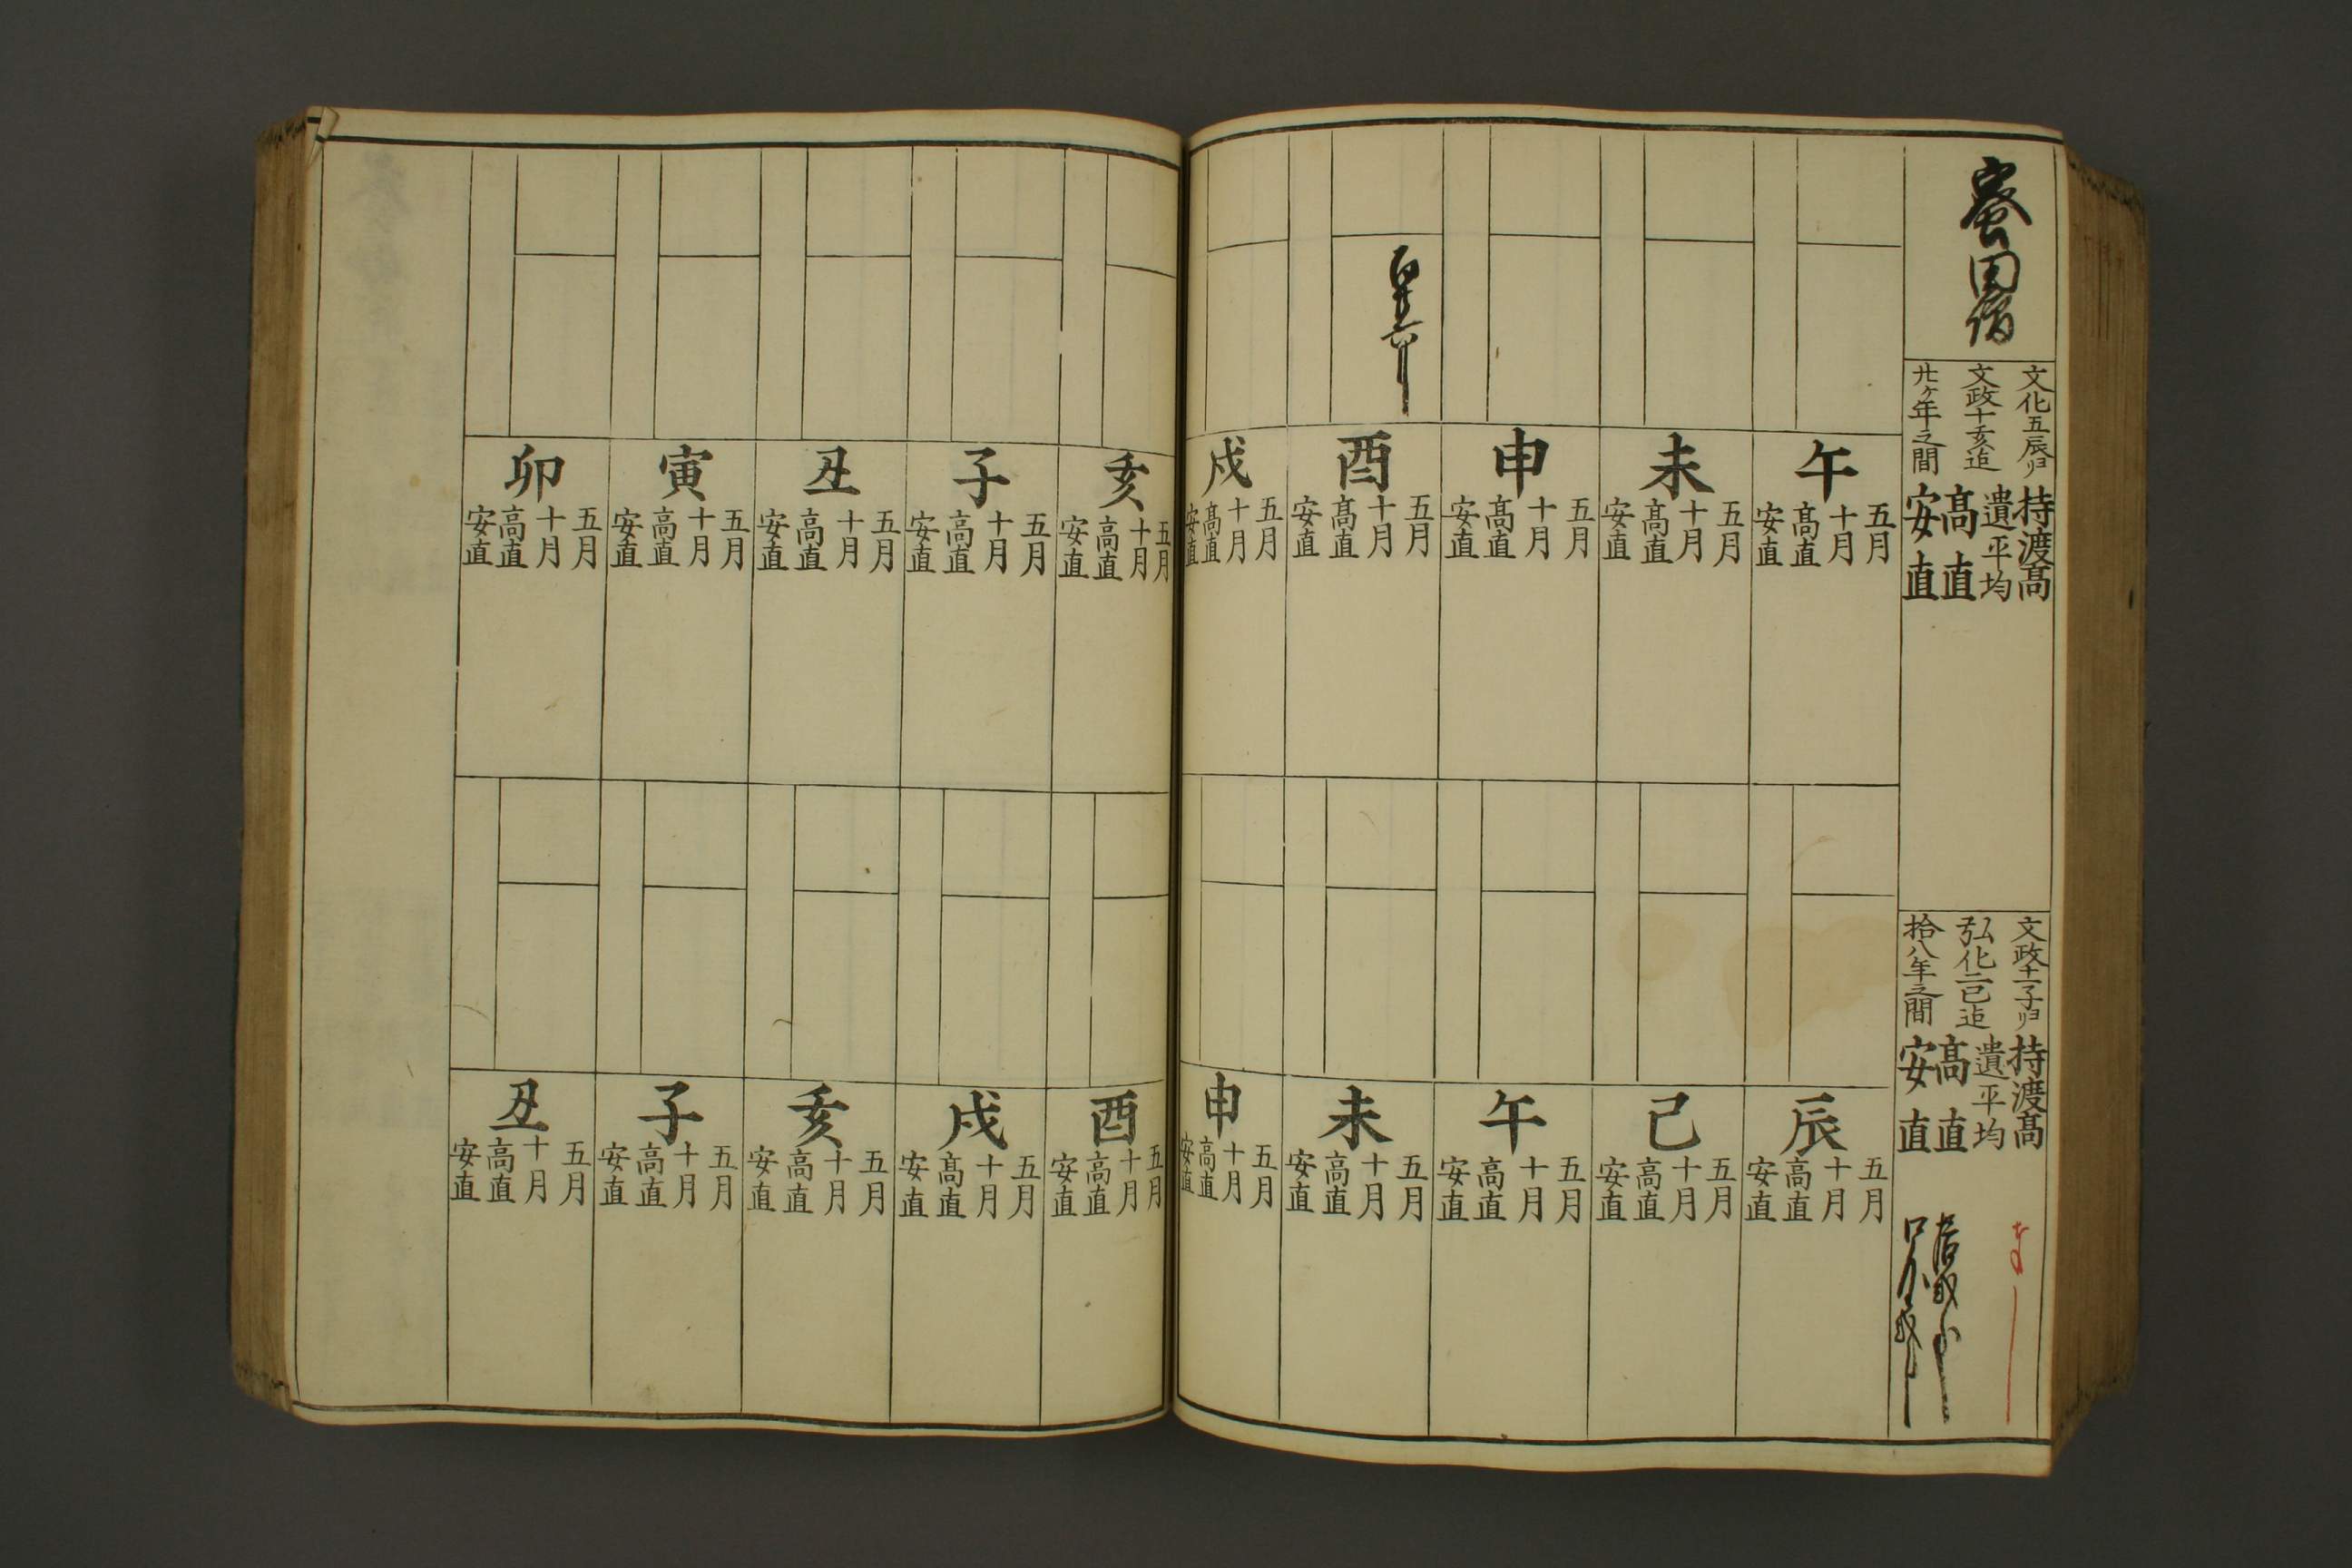 文化五辰ゟ
文政十亥迄
廿ヶ年之間
持渡髙
遺平均
髙直
安直
文政十一子ゟ
弘化二巳迄
拾八年之間
持渡髙
遺平均
髙直
安直
午
五月
十月
髙直
安直
未
五月
十月
髙直
安直
申
五月
十月
髙直
安直
酉
五月
十月
髙直
安直
戌
五月
十月
髙直
安直
辰
五月
十月
髙直
安直
巳
五月
十月
髙直
安直
午
五月
十月
髙直
安直
未
五月
十月
髙直
安直
申
五月
十月
髙直
安直
亥
五月
十月
髙直
安直
子
五月
十月
髙直
安直
丑
五月
十月
髙直
安直
寅
五月
十月
髙直
安直
卯
五月
十月
髙直
安直
酉
五月
十月
髙直
安直
戌
五月
十月
髙直
安直
亥
五月
十月
髙直
安直
子
五月
十月
髙直
安直
丑
五月
十月
髙直
安直